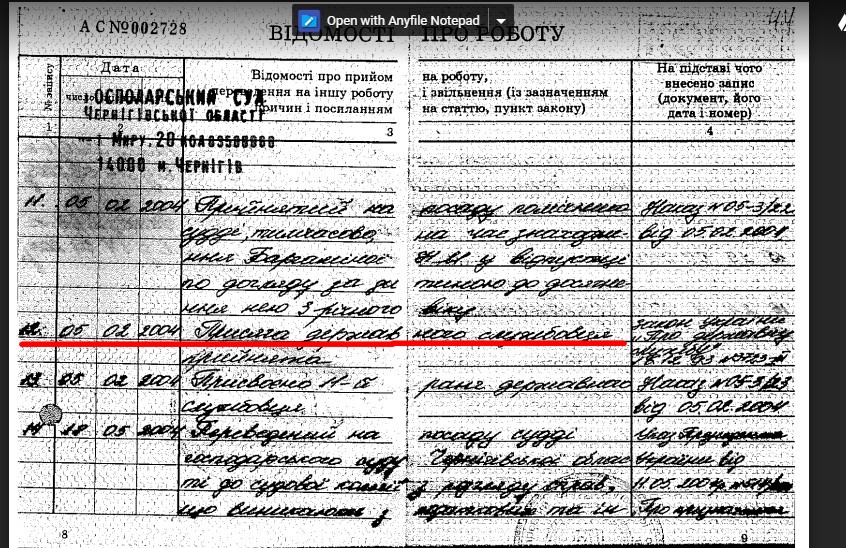 Open with Anyfile Notepad
АС№002728
ВІДОМОСТІ ПРО РОБОТУ
№ запису
Дата
Відомості про прийом на роботу,
переведення на іншу роботу і звільнення (із зазначенням
причин і посиланням на статтю, пункт закону)
На підставі чого
внесено запис
(документ, його
дата і номер)
ГОСПОДАРСЬКИЙ СУД
ЧЕРНІГІВСЬКОЇ ОБЛАСТІ
Миру, 20
14000 м. ЧЕРНІГІВ
1 2 3 4
11. 05 02 2004 Прийнятий на посаду помічника Наказ №05-3/22
судді, тимчасово, на час знаходже- від 05.02.2004
ння у відпустці
по догляду за ди тиною до досягне
ння нею 3 річного віку
12. 05 02 2004 Присяга держав ного службовця закон України
прийнята "Про державну
службу"
13 05 02 2004 Присвоєно ранг державного Наказ №05-3/23
службовця від 05.02.2004
14 18 05 2004 Переведений на посаду судді Указ Президента
господарського суду Чернігівської облас України від
ті до судової колегії з розгляду справ, 11.05.2004р.
що виникають з податкових та ін Про призначення
8
9